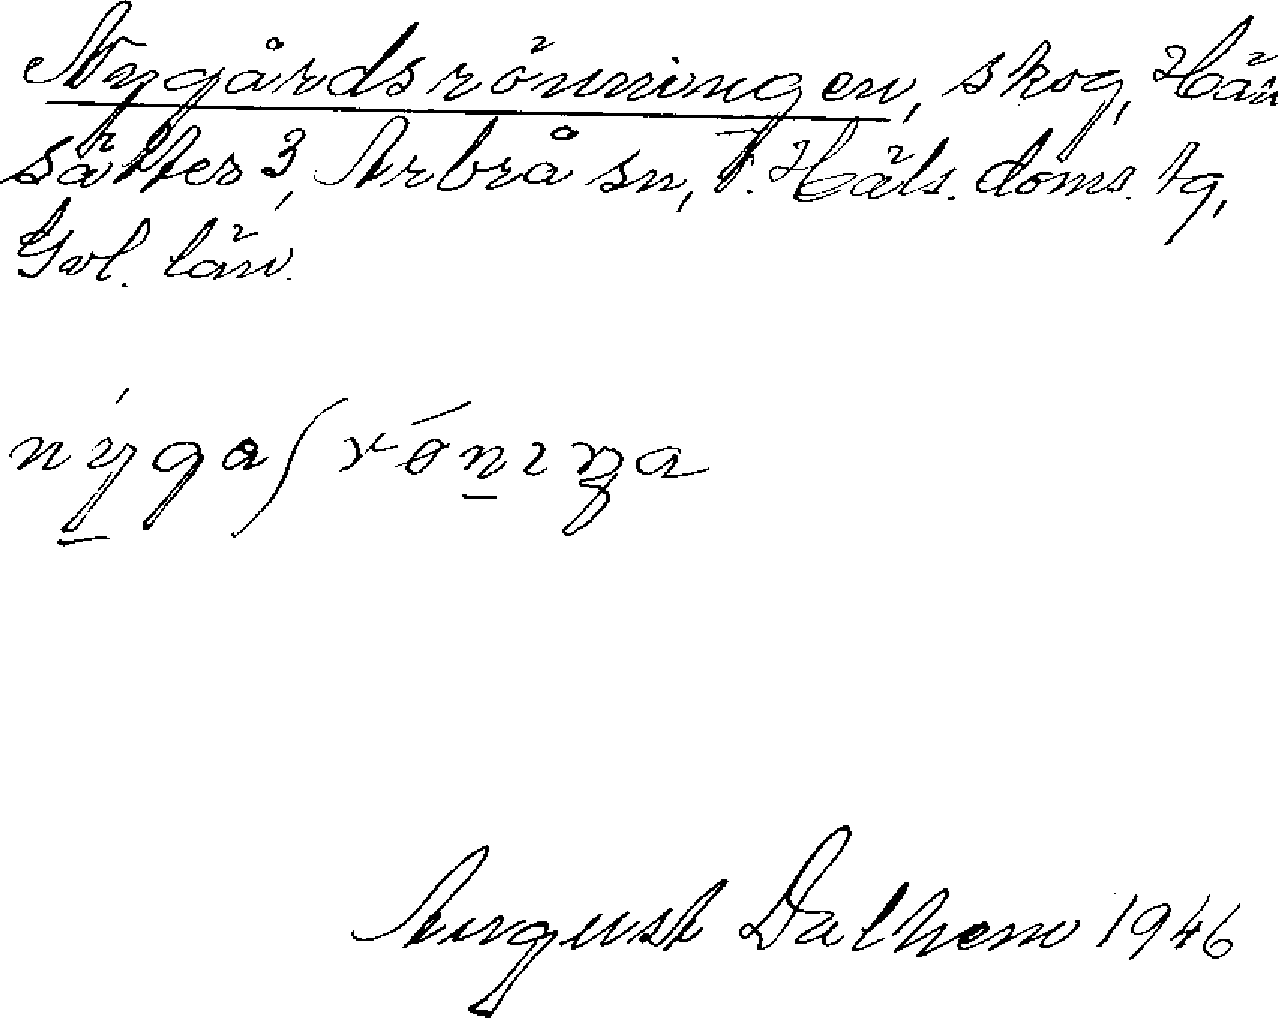 Nygårdsrönningen, skog, Hän
sätter 3, Arbrå sn, V. Häls. doms. tg,
Gvl. län.
nýgaʃrǿnıŋa
August Dalhem 1946